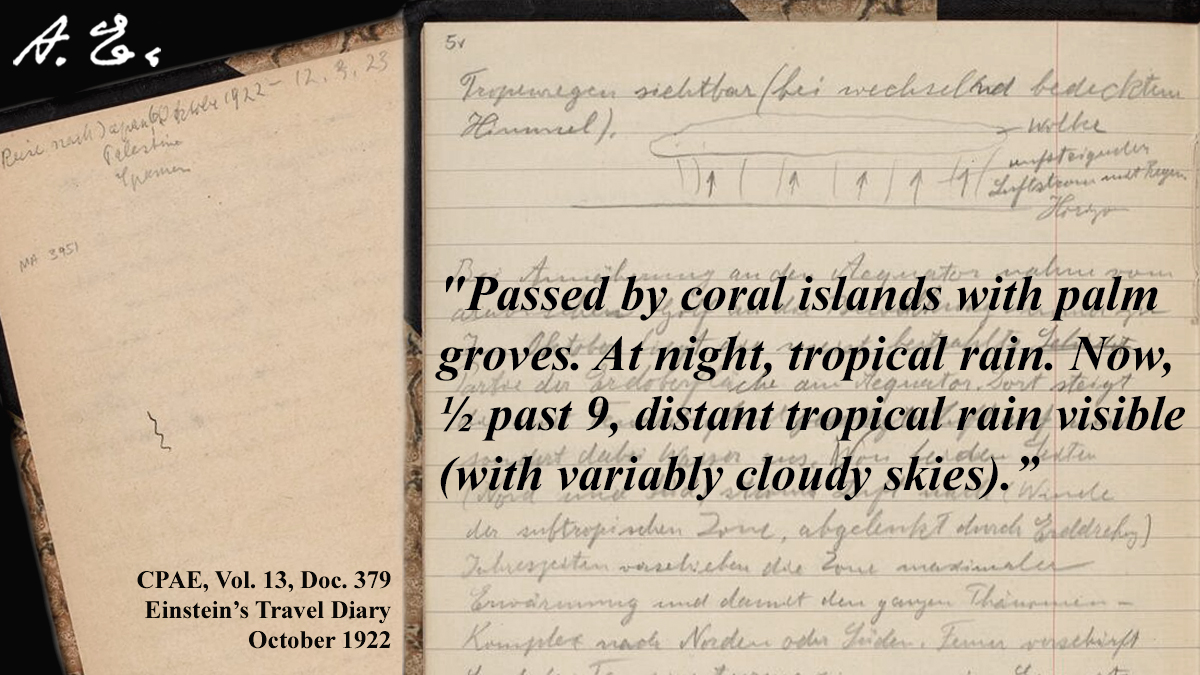 A. E.
Reise nach Japan Oktober 1922 – 12. 3. 23
Palestine
Spanien
MA 3951
5v
Tropenregen sichtbar (bei wechselnd bedecktem
Himmel).
Wolke
aufsteigender
Luftstrom mit Regen
Horizo
Bei Annäherung an den Aequator nahm vom
"Passed by coral islands with palm
groves. At night, tropical rain. Now,
½ past 9, distant tropical rain visible
(with variably cloudy skies).”
der Erdoberfläche am Aequator. Dort steigt
von beiden Seiten
(Nord und Süd) strömt Luft nach (Winde
der subtropischen Zone, abgelenkt durch Erddrehg)
Jahreszeiten verschieben die Zone maximaler
Erwärmung und damit den ganzen Phänomen-
Komplex nach Norden oder Süden. Ferner verschärft
CPAE, Vol. 13, Doc. 379
Einstein’s Travel Diary
October 1922